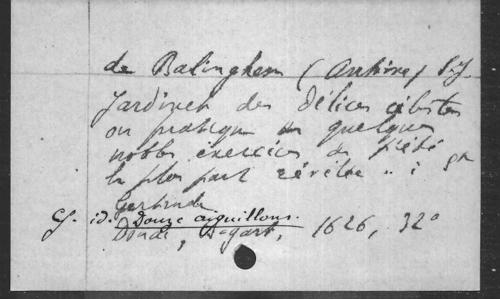 de Balinghem (Antoine) S.J.
Jardinet des délices célestes
ou pratique de quelques
nobles exercices de piété
la plus part révélés .. à Ste
Gertrude
cf. id. Douze aiguillons.
Douai, Bogart, 1626, 32°